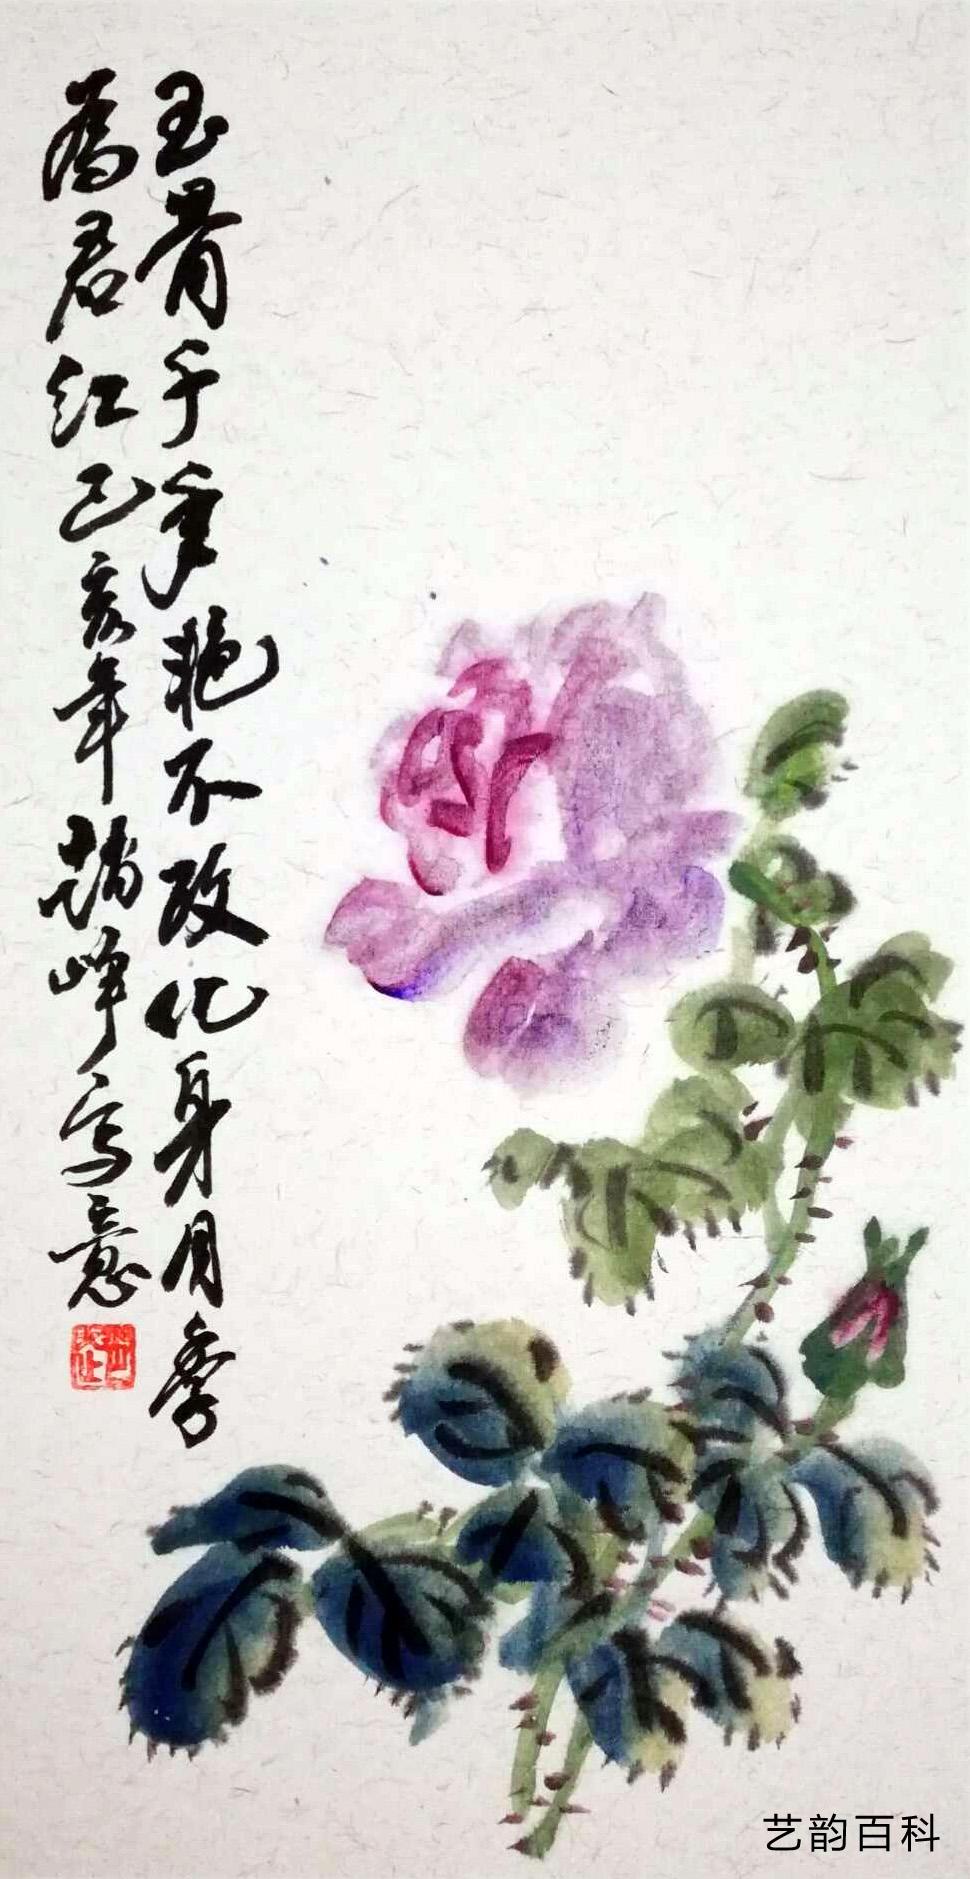 玉骨千年艳不改化身月季
為君红己亥年趙峰写意
艺韵百科